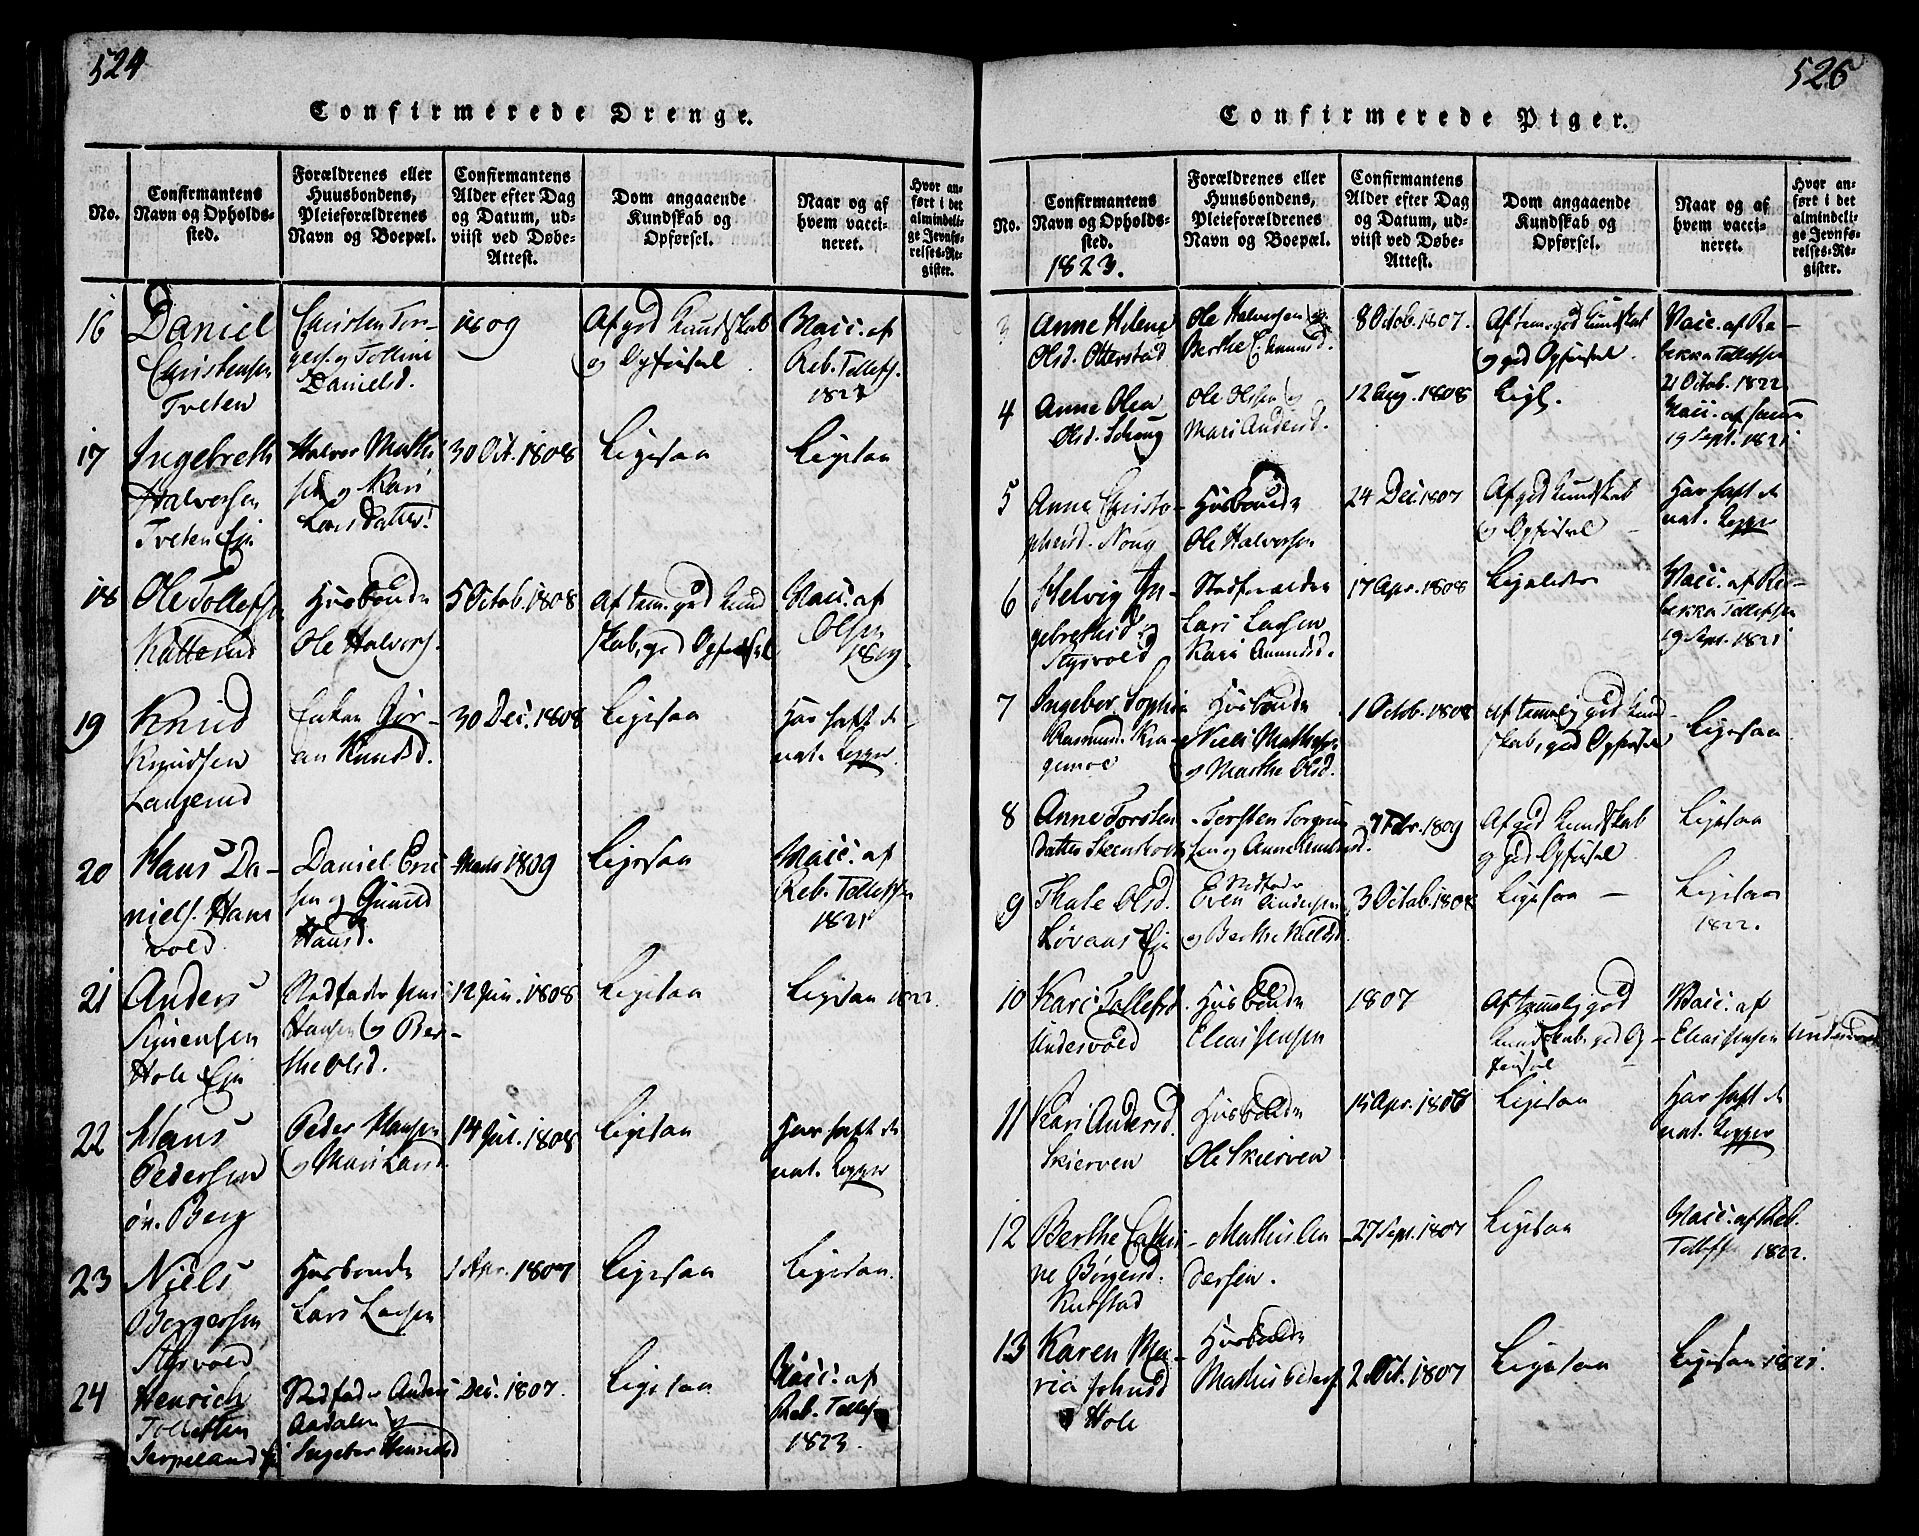 524
Confirmerede Drenge.
No.
Confirmantens
Navn og Opholds-
sted.
Forældrenes eller
Huusbondens,
Pleieforældrenes
Navn og Boepæl.
Confirmantens
Alder efter Dag
og Datum, ud-
viist ved Døbe-
Attest.
Dom angaaende
Kundskab og
Opførsel.
Naar og af
hvem vacci-
neret.
Hvor an-
ført i det
almindeli-
ge Jevnfø-
relses-Re-
gister.
16
Daniel
Christensen
Tveten
Christen Tor-
gers. ogOlline
Danielsd.
1809
Af god Kundskab
og Opførsel
Vacc. af
Reb. Tollefs.
17
Ingebreth
Halvorsen
Tveten Eje
Halvor Mathi
sen og Kari
Larsdatter
30 Oct. 1808
Ligesaa
Ligesaa
18
Ole Tollefsen
Huusbonde
Ole Halvors.
5 Octob. 1808
Af tem. god Kund
skab, god Opførsel
Vacc. af
Olsen
1819
19
Knud
Knudsen
Laugerud
Enken Gør-
an Knudsd.
30 Dec. 1808
Ligesaa
Har haft de
nat. Kopper
20
Hans Da-
niels. Hans
vold
Daniel Eric
sen og Gunild
Hansd.
Marts 1809
Ligesaa
Vacc. af
Reb. Tollefsen
1821
21
Anders
Sørensen
Hole Eje
Stedfader Jens
Hansen og Ber-
the Olsd.
12 Jun. 1808
Ligesaa
Ligesaa 1822.
22
Hans
Pedersen
øv. Berg
Peder Hansen
og Mari Larsd.
14 Jul. 1808
Ligesaa
Har haft de
nat. Kopper
23
Niels
Borgersen
Styrvold
Huusbonde
Lars Larsen
1 Apr. 1807
Ligesaa
Ligesaa.
24
Henrich
Tollefsen
Jerpeland Eje
Stedfader Anders
Aadalen og
Ingebor Henrichsd
Dec. 1807.
Ligesaa
Vacc. af
Reb. Tollefs
1823.
526
Confirmerede Piger.
No.
Confirmantens
Navn og Opholds-
sted.
1823.
Forældrenes eller
Huusbondens,
Pleieforældrenes
Navn og Boepæl.
Confirmantens
Alder efter Dag
og Datum, ud-
viist ved Døbe-
Attest.
Dom angaaende
Kundskab og
Opførsel.
Naar og af
hvem vacci-
neret.
Hvor an-
ført i det
almindeli-
ge Jevnfø-
relses-Re-
gister.
3
Anne Helene
Olsd. Otterstad
Ole Halvorsen og
Berthe Edmund.
8 Octob. 1807.
Af tem. god Kundskab
og god Opførsel.
Vacc. af Re-
bekka Tollefsen
21 Octob. 1822
4
Anne Olea
Olsd.
Ole Olsen og
Mari Andersd.
12 Aug. 1808
Lig.
Vacc. af samme
19 Sept. 1821
5
Anne Christo-
phersd. Noug
Huusbonde
Ole Halvorsen
24 Dec. 1807
Af god Kundskab
og Opførsel
Har haft de
nat. Kopper
6
Helvig In-
gebrethsd.
Styrvold
Stedforældre
Lars Larsen
Kari Amundsd.
17 Apr. 1808
Ligeledes
Vacc. af Re-
bekka Tollefsen
19 Sept. 1821
7
Ingebor Sophie
Rasmusd. Kra-
gemoe
Huusbonde
Niels Mathiesen
og Marthe Olsd.
1 Octob. 1808
Af temelig god Kund-
skab, god Opførsel
Ligesaa
8
Anne Torsten
datter Steensholt
Torsten Torgrim
sen og Anne Amundsd
7 Febr. 1809
Af god Kundskab
og god Opførsel
Ligesaa
9
Thale Olsd.
Løvaas Eje
Stedfader
Even Andersen
og Berthe Nielsd.
3 Octob. 1808
Ligesaa
Ligesaa
1822.
10
Kari Tollefsd
Undersvold
Huusbonde
Elias Jensen
1807
Af temmelig god
Kundskab god Op-
førsel
Vacc. af
Elias Jensen Undersvold
11
Kari Andersd.
Skierven
Huusbonde
Ole Skierven
15 Apr. 1808
Ligesaa
Har haft de
nat. Kopper
12
Berthe Cathri-
ne Børgersd.
Rustad
Mathis An-
dersen.
27 Sept. 1807
Ligesaa
Vacc. af Reb.
Tollefs 1822.
13
Karen Ma-
ria Johnsd
Hole
Huusbonde
Mathis Peders
2 Oct. 1807
Ligesaa
Ligesaa 1821.